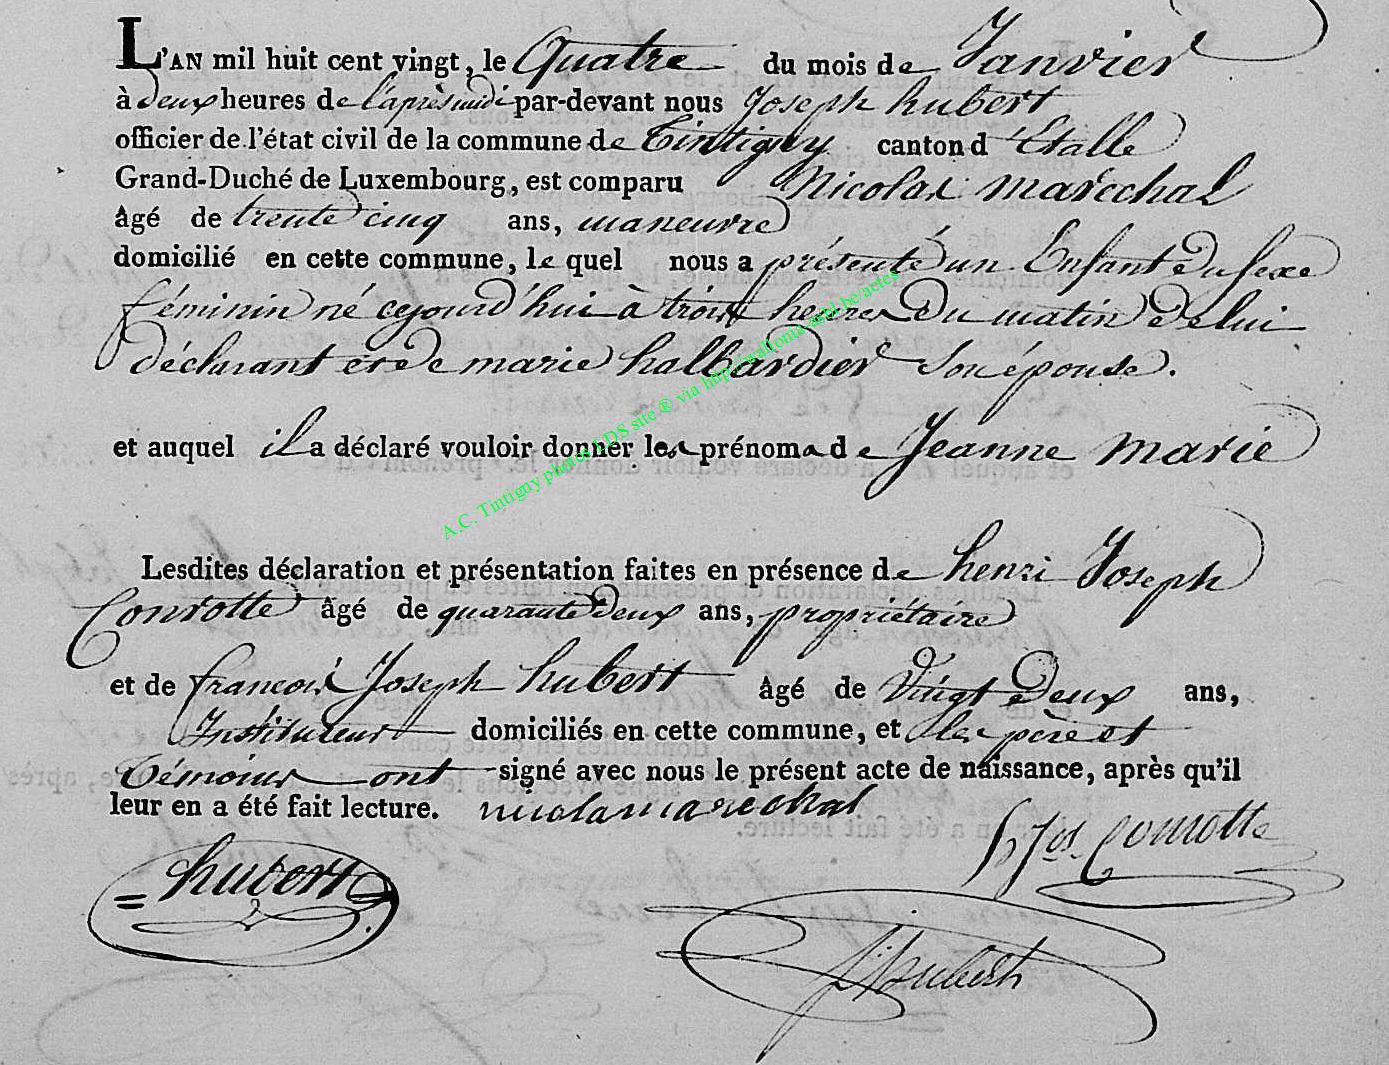 L'AN mil huit cent vingt, le Quatre du mois de Janvier
à deux heures de l'après midi par-devant nous Joseph hubert
officier de l'état civil de la commune de Tintigny canton d'Etalle
Grand-Duché de Luxembourg, est comparu Nicolas marechal
âgé de trente cinq ans, maneuvre
domicilié en cette commune, le quel nous a présenté un Enfant du sexe
féminin né cejourd'hui à trois heures du matin de lui
déclarant et de marie hallbardier son épouse.
et auquel il a déclaré vouloir donner les prénoms de Jeanne marie
Lesdites déclaration et présentation faites en présence de henri Joseph
Conrotte âgé de quarante deux ans, propriétaire
et de françois Joseph hubert âgé de Vingt deux ans,
Instituteur domiciliés en cette commune, et les père et
témoins ont signé avec nous le présent acte de naissance, après qu'il
leur en a été fait lecture. nicolas marechal
h Jos. Conrotte
= hubert
f j hubert
A.C. Tintigny photos LDS site ® via http://wallonia-asbl.be/actes